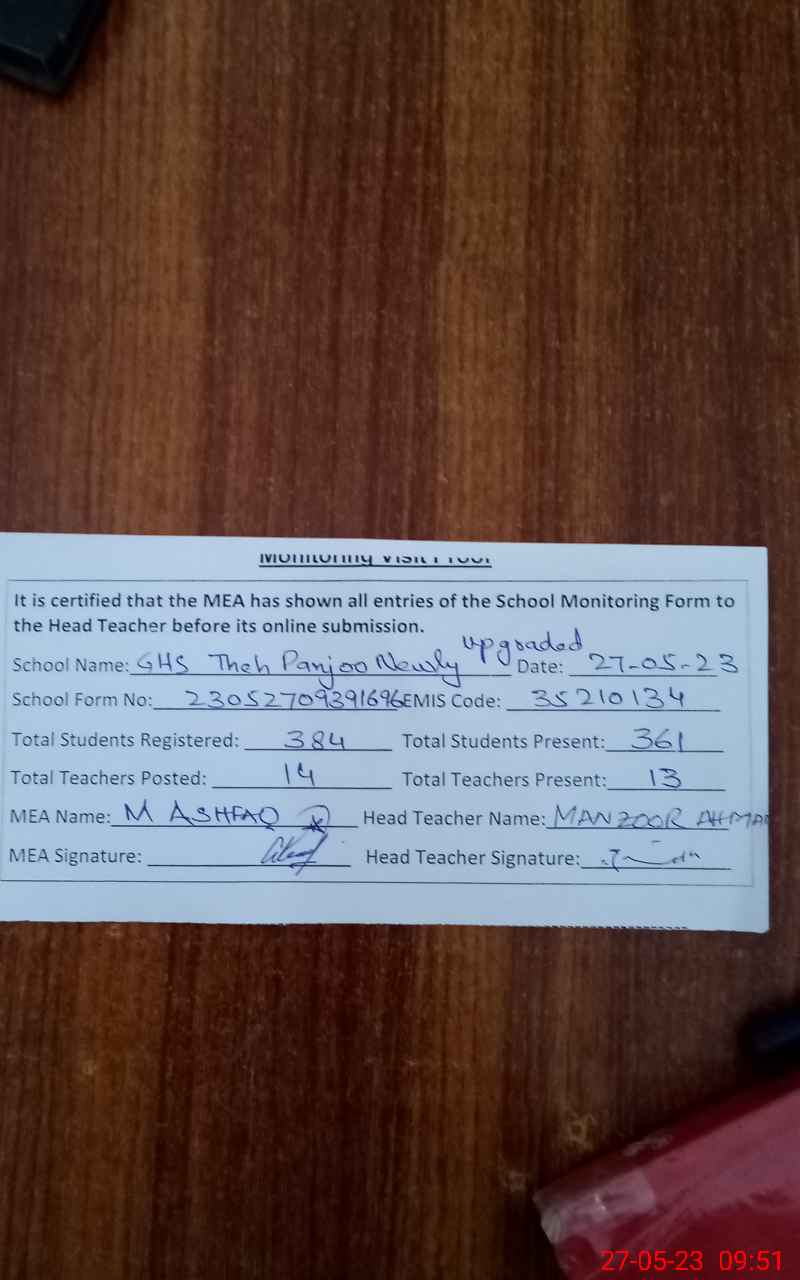 Monitoring Visit Proof
It is certified that the MEA has shown all entries of the School Monitoring Form to
the Head Teacher before its online submission.
School Name: GHS Theh Panjoo Newly upgraded Date: 27-05-23
School Form No: 23052709391696 EMIS Code: 35210134
Total Students Registered: 384 Total Students Present: 361
Total Teachers Posted: 14 Total Teachers Present: 13
MEA Name: M ASHFAQ Head Teacher Name: MANZOOR AHMAD
MEA Signature: Head Teacher Signature:
27-05-23 09:51